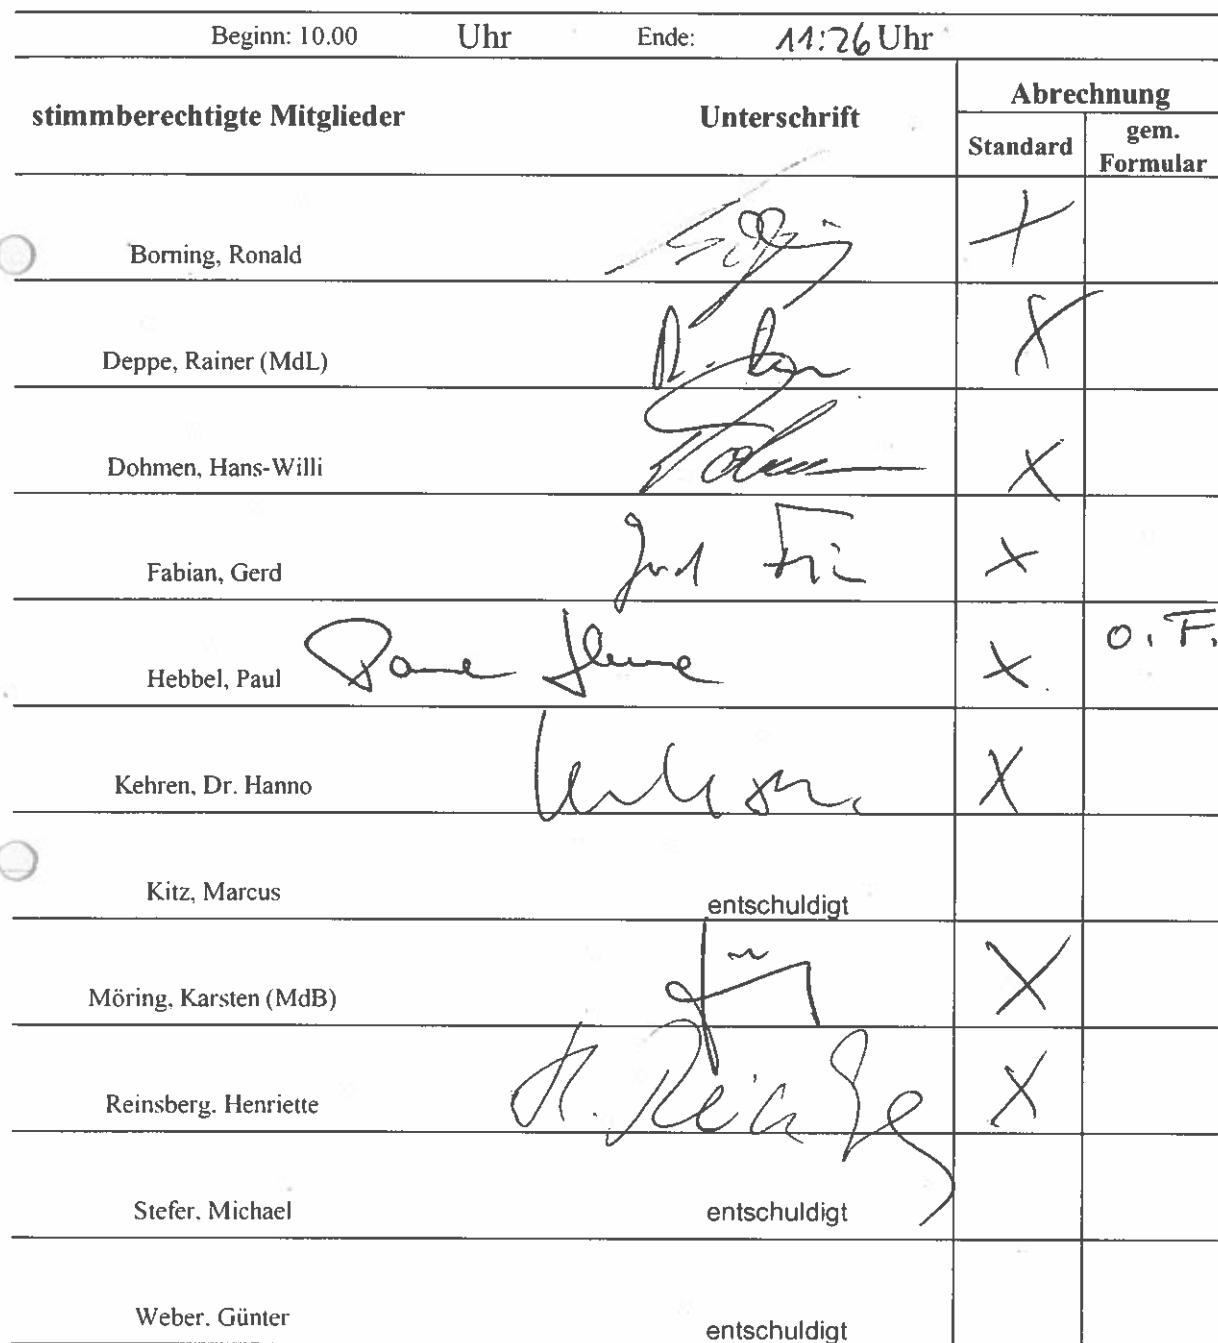 Beginn: 10.00 Uhr Ende: 11:26 Uhr
stimmberechtigte Mitglieder Unterschrift Abrechnung
Standard gem. Formular
Borning, Ronald
Deppe, Rainer (MdL)
Dohmen, Hans-Willi
Fabian, Gerd
Hebbel, Paul o. F.
Kehren, Dr. Hanno
Kitz, Marcus entschuldigt
Möring, Karsten (MdB)
Reinsberg. Henriette
Stefer, Michael entschuldigt
Weber. Günter entschuldigt